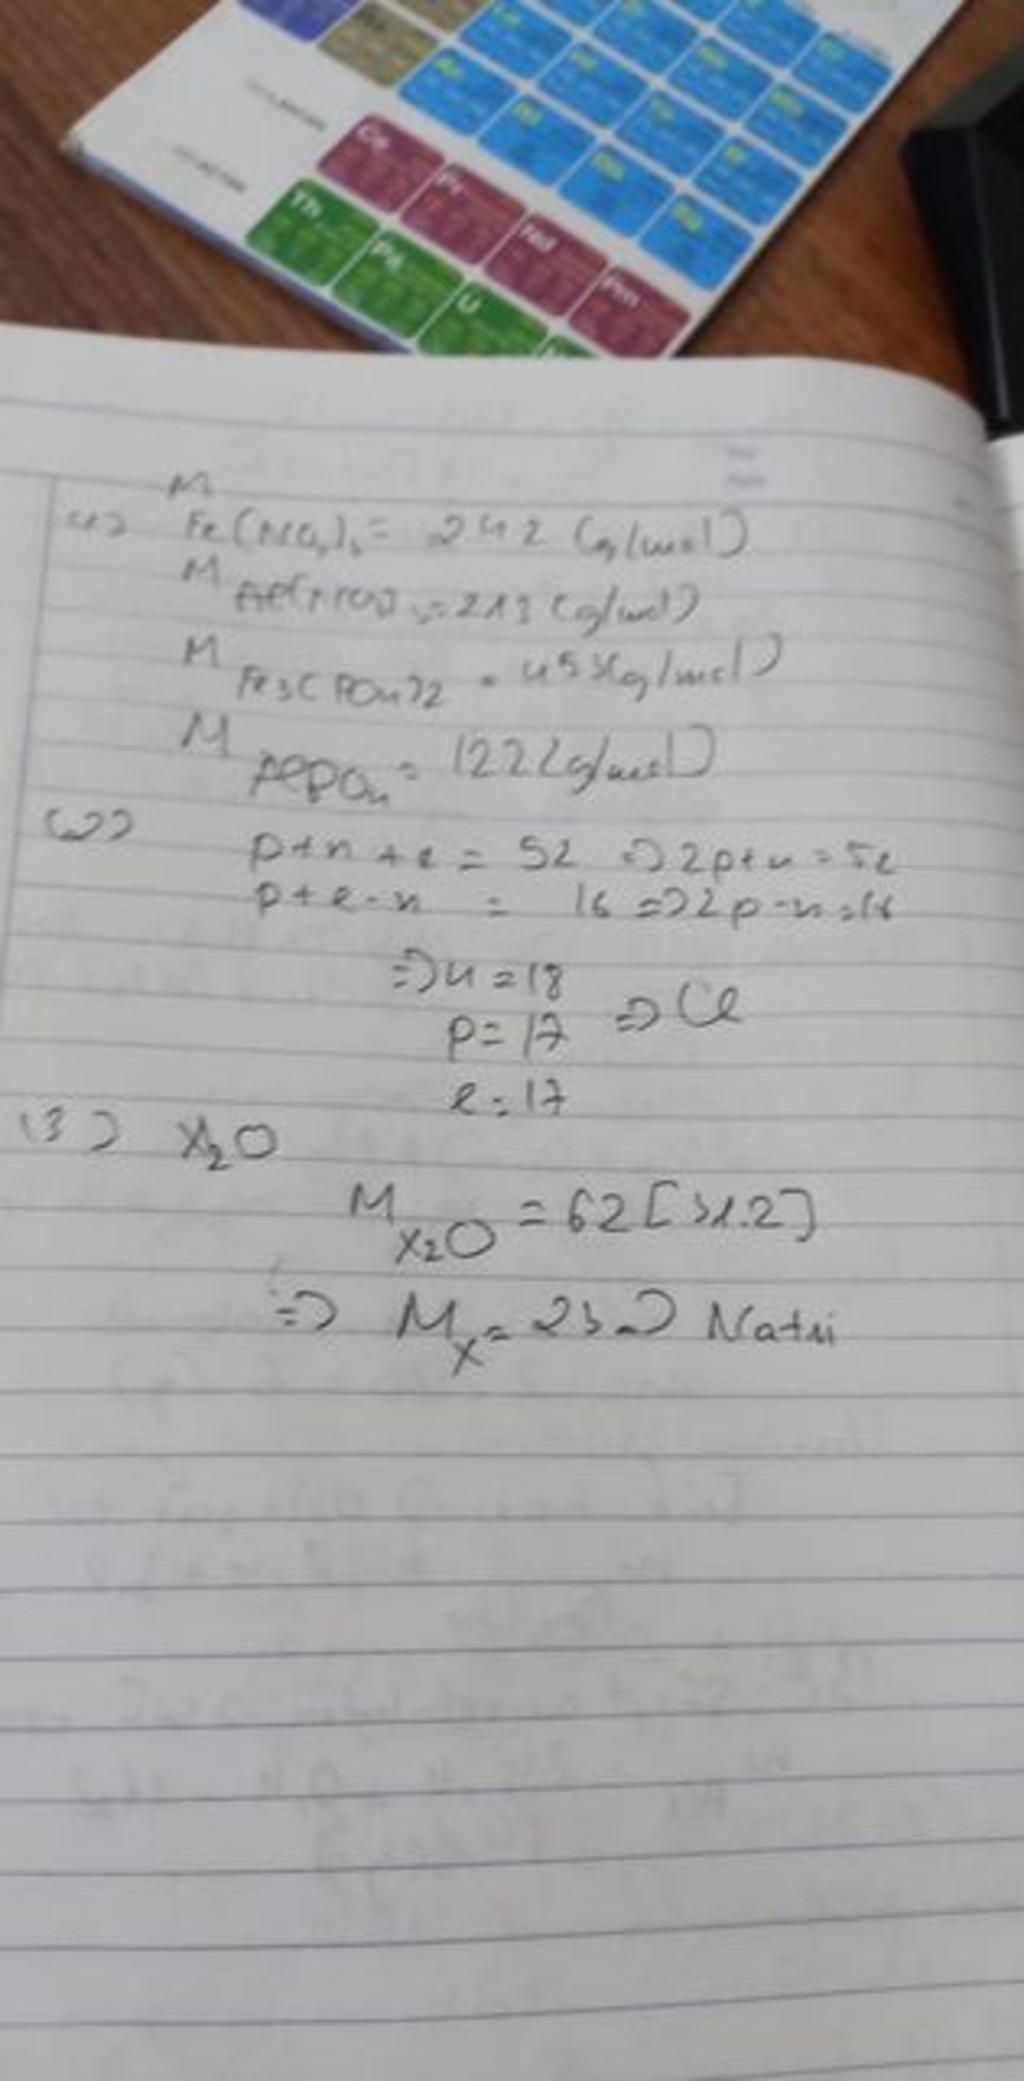 Th Pa U
Ce Pr Nd Pm
M
Fe(NO₃)₃ = 242 (g/mol)
M Al(NO₃)₃ = 213 (g/mol)
M Fe3(PO4)2 = 453(g/mol)
M AlPO₄ = 122(g/mol)
p+n+e = 52 => 2p+n = 52
p+e-n = 16 => 2p-n = 16
=> n = 18
p = 17 => Cl
e = 17
(3) X₂O
M X₂O = 62 [31.2]
=> M X = 23 => Natri